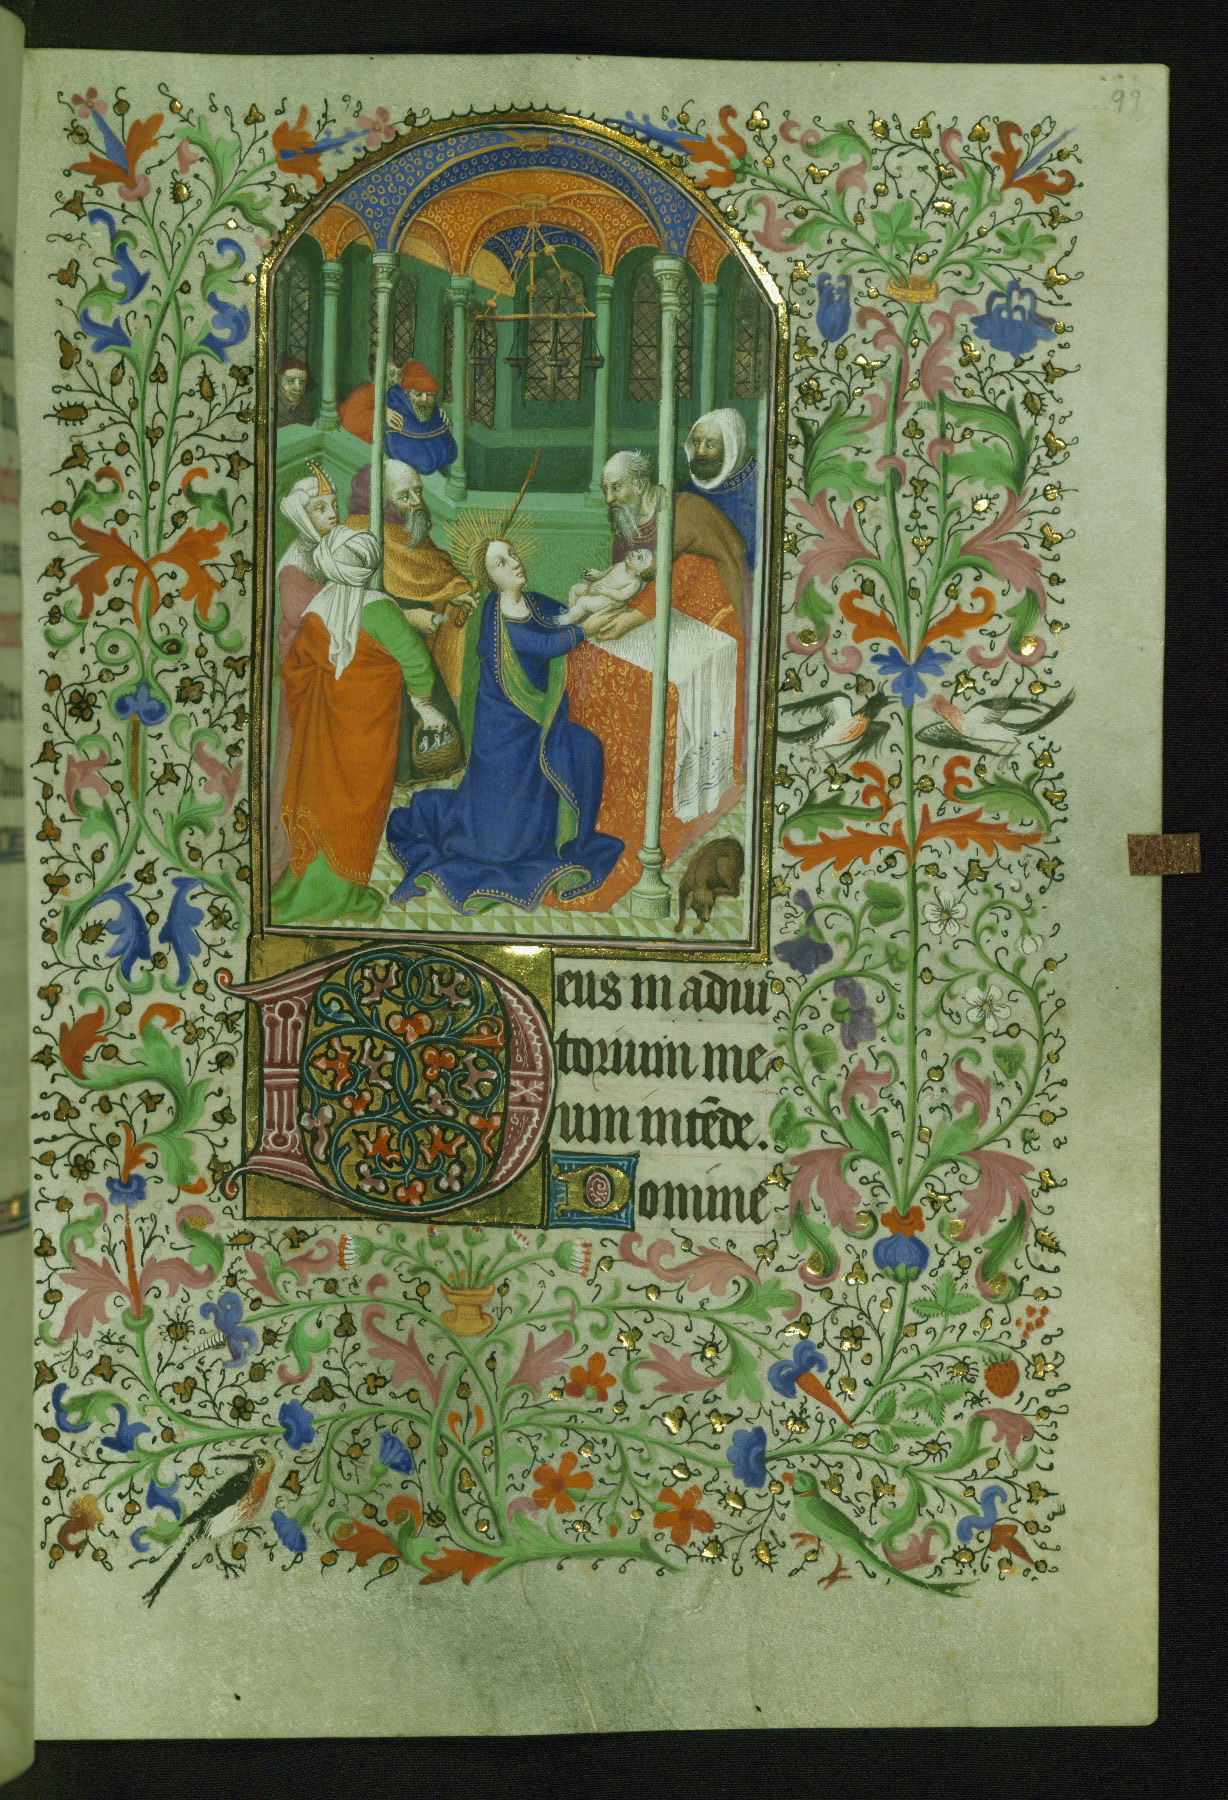 99
Deus in adiu
torium me
um intēde.
Domine